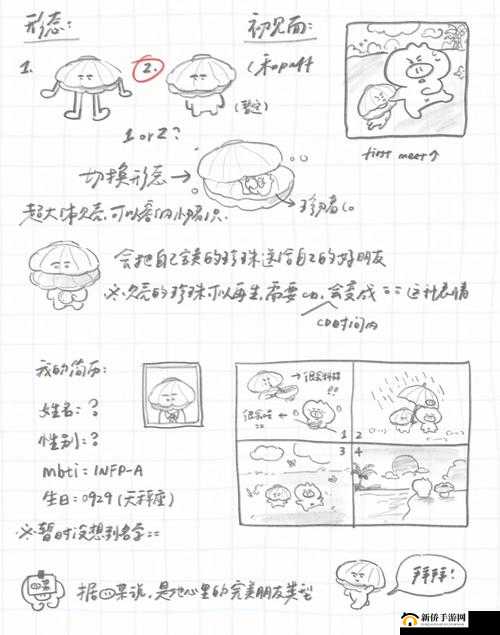 形态:
初次见面:
1.
2.
(和
(暂定)
1 or 2?
first meet↑
切换形态→
→珍珠
超大体贝壳,可以容纳小
会把自己宝贵的珍珠送给自己的好朋友
※贝壳的珍珠可以再生,需要cd,会变成 = = 这种表情
CD时间内
我的简历:
姓名:?
性别:?
mbti:INFP-A
生日:0929(天秤座)
※暂时没想到名字==
1
2
3
4
据四菜说,是她心里的完美朋友类型
四菜
拜拜!
新侨手游网